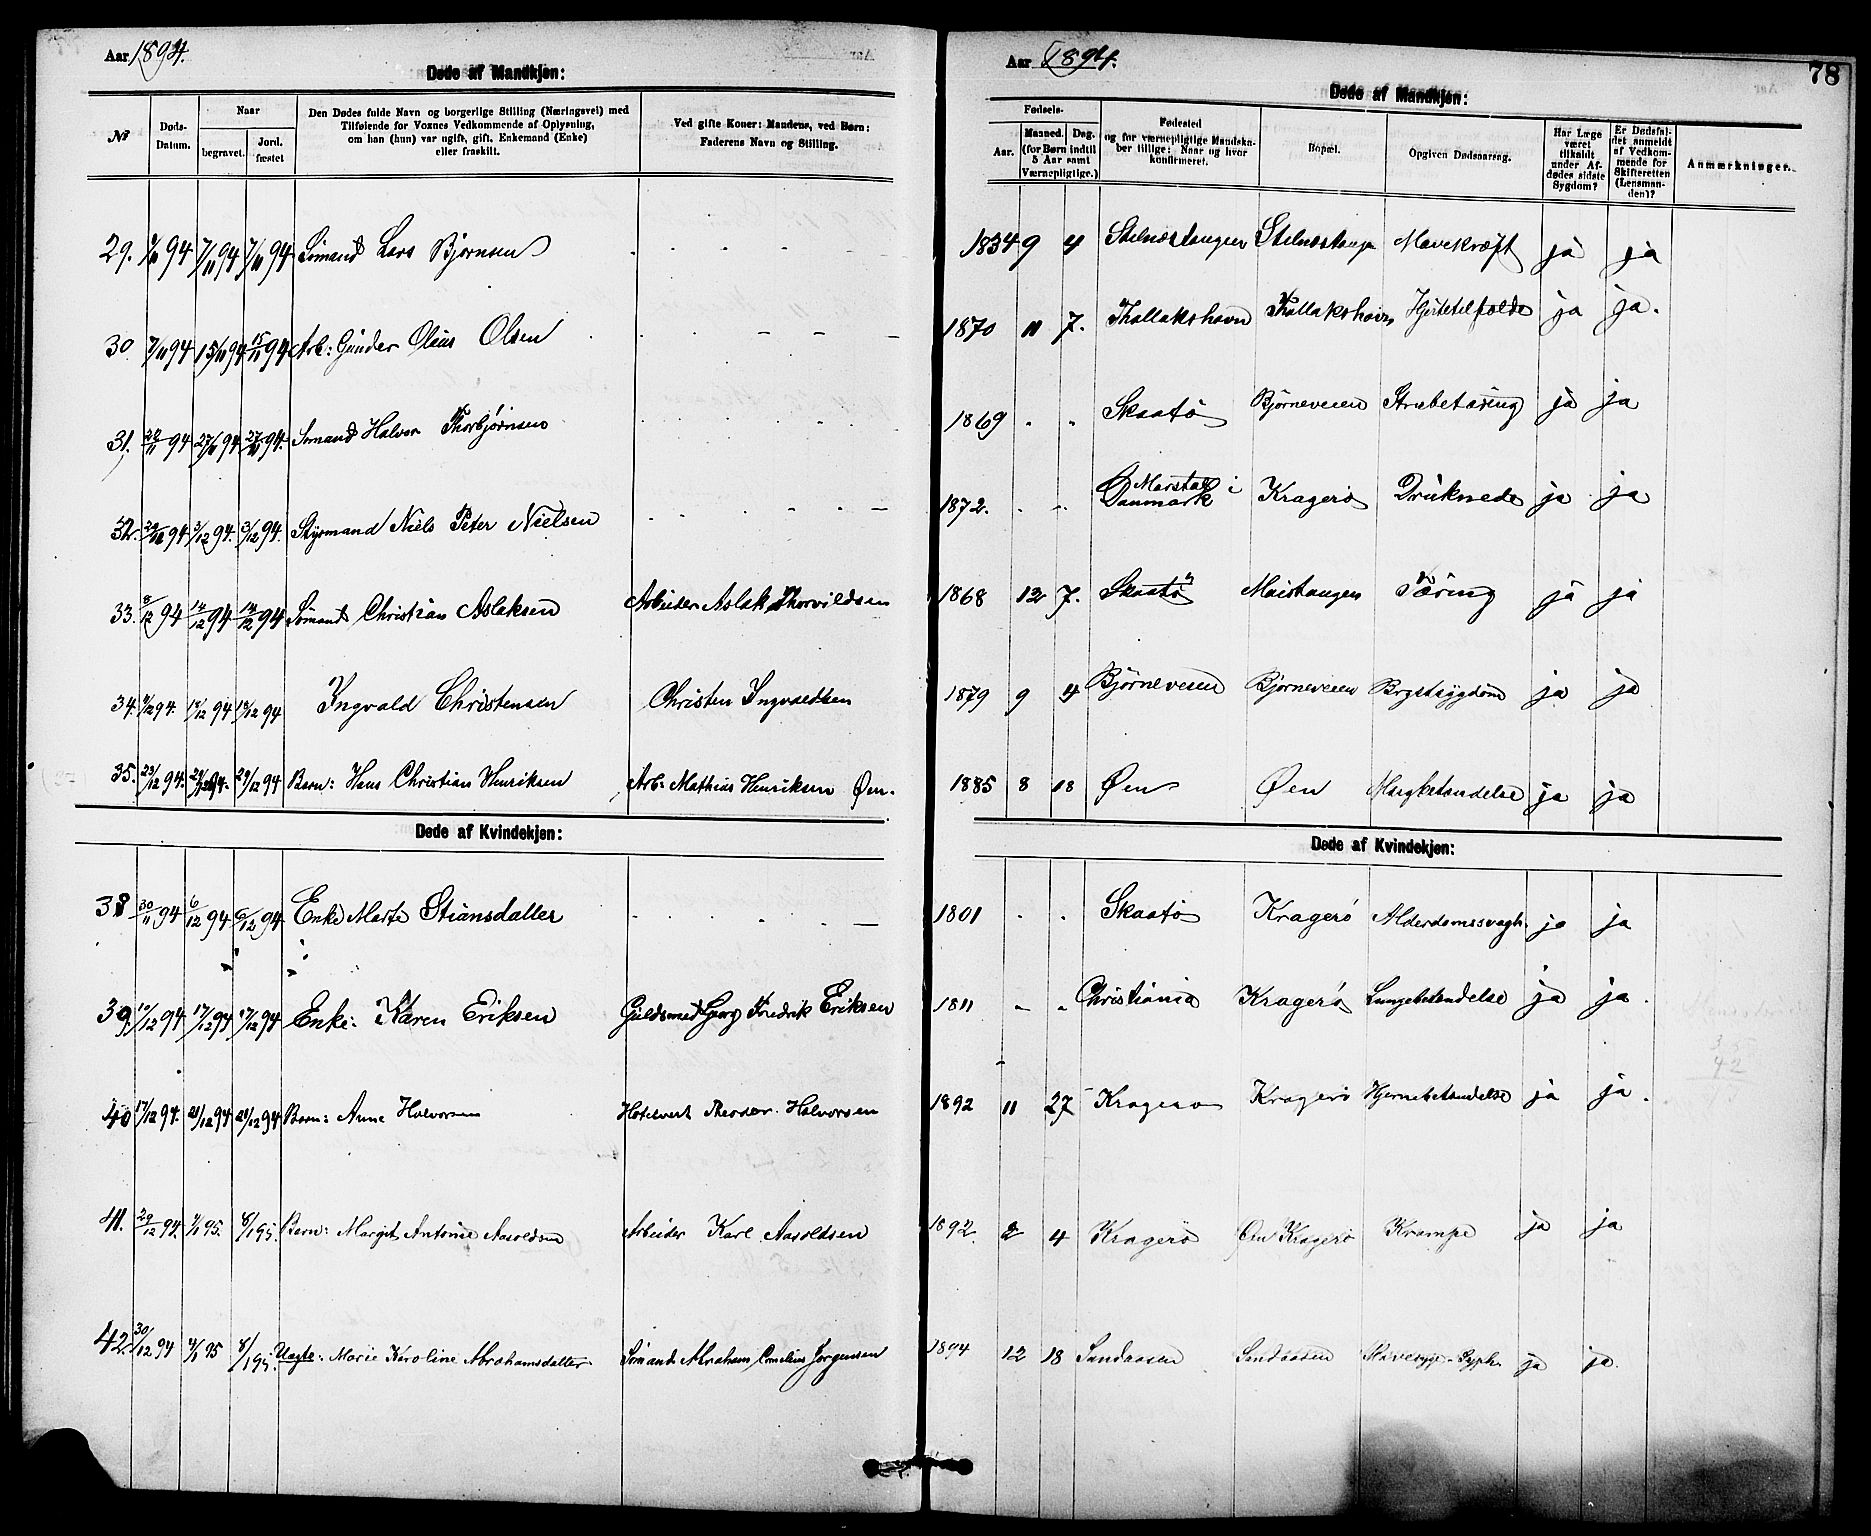 Aar 1894.
Døde af Mandkjøn:
№
Døds-Datum.
Naar
begravet.
Jord. fæstet
Den Dødes fulde Navn og borgerlige Stilling (Næringsvei) med
Tilføiende for Voxnes Vedkommende af Oplysning,
om han (hun) var ugift, gift, Enkemand (Enke)
eller fraskilt.
Ved gifte Koner: Mandens, ved Børn:
Faderens Navn og Stilling.
29. 94 7/11 94 7/11 94 Sømand Lars Bjørnsen
30 7/11 94 15/11 94 15/11 94 Arb: Gunder Olaus Olsen
31. 22/11 94 27/11 94 27/11 94. Sømand Halvor Thorbjørnsen
32. 94 3/12 94. 3/12 94. Styrmand Niels Peter Nielsen
33. 8/12 94 14/12 94 14/12 94 Sømand Christian Aslaksen Arbeider Aslak Thorvildsen
34. 94. 18/12 94 18/12 94 Ingvald Christensen Christen Ingvaldsen
35. 23/12 94. 29/12 94. 29/12 94 Barn: Hans Christian Henriksen Arb: Mathias Henriksen Øen.
Døde af Kvindekjøn:
38 30/11 94 6/12 94 6/12 94 Enke Marte Stiansdatter
39 10/12 94 17/12 94 17/12 94 Enke: Karen Eriksen Guldsmed Georg Fredrik Eriksen
40 17/12 94. 21/12 94 21/12 94 Barn: Anne Halvorsen Hotelvert Theodor Halvorsen
41. 29/12 94. 95. 8/1 95. Barn: Margit Antonie Aasoldsen Arbeider Karl Aasoldsen
42. 30/12 94 4/1 95 8/1 95. Uægte: Marie Karoline Abrahamsdatter Sømand Abraham Cornelius Jørgensen
Aar 1894.
78
Døde af Mandkjøn:
Fødsels-
Aar.
Maaned. Dag.
(for Børn indtil
5 Aar samt
Værnepligtige.)
Fødested
og for værnepligtige Mandskaber tillige: Naar og hvor
konfirmeret.
Bopæl.
Opgiven Dødsaarsag.
Har Læge
været
tilkaldt
under Afdødes sidste
Sygdom?
Er Dødsfaldet anmeldt
af Vedkommende for
Skifteretten
(Lensmanden)?
Anmærkninger.
1834 9 4 Stelnæstangen Stelnæstangen Mavekræft ja ja
1870 11 7. Thallakshavn Thallakshavn Hjertetilfælde ja ja.
1869 Skaatø Bjørneveien Strubetæring ja ja
1872. Marstal i Danmark Kragerø Druknede ja ja
1868 12 7. Skaatø Maistangen Tæring ja ja
1879 9 4 Bjørneveien Bjørneveien Brystsygdom ja ja
1885 8 18 Øen Øen Margbetændelse ja ja
Døde af Kvindekjøn:
1801 Skaatø Kragerø Alderdomssvagh. ja ja
1811 Christiania Kragerø Lungebetændelse ja ja.
1892 11 27 Kragerø Kragerø Hjernebetændelse ja ja.
1892. 2 4 Kragerø Øen Kragerø Krampe ja ja
1894 12 18 Sandaasen Sandaasen ja ja.
35
42